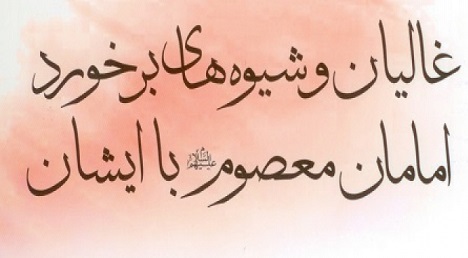 غالیان و شیوه‌های برخورد
امامان معصوم علیهم السلام با ایشان